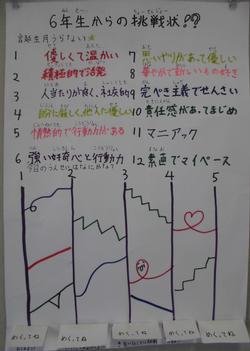 6年生からの挑戦状!?
誕生月うらない☆
1 優しくて温かい
2 積極的で活発
3 人当たりが良く、社交的
4 自分に厳しく、他人に優しい
5 情熱的で行動力がある
6 強い好奇心と行動力
7 思いやりがあって優しい
8 華やかで新しいもの好き
9 完ぺき主義でせんさい
10 責任感があってまじめ
11 マニアック
12 素直でマイペース
今日のうんせいはなにかな?
1 2 3 4 5
めくってね めくってね めくってね めくってね めくってね